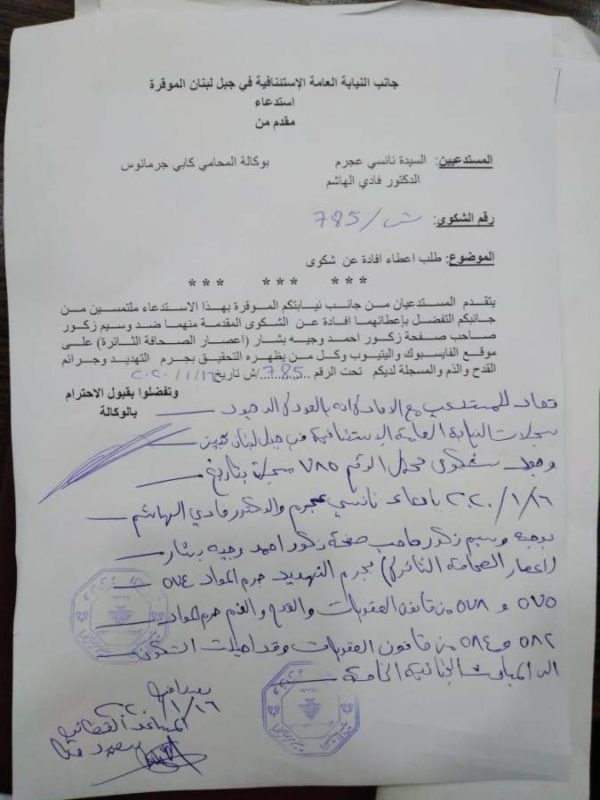 جانب النيابة العامة الإستئنافية في جبل لبنان الموقرة
استدعاء
مقدم من
المستدعيين: السيدة نانسي عجرم بوكالة المحامي كابي جرمانوس
الدكتور فادي الهاشم
رقم الشكوى: 785/ش
الموضوع: طلب اعطاء افادة عن شكوى
*** *** ***
يتقدم المستدعيان من جانب نيابتكم الموقرة بهذا الاستدعاء ملتمسين من
جانبكم التفضل بإعطائهما افادة عن الشكوى المقدمة منهما ضد وسيم زكور
صاحب صفحة زكور احمد وجيه بشار (اعصار الصحافة الثائرة) على
موقع الفايسبوك واليتيوب وكل من يظهره التحقيق بجرم التهديد وجرائم
القدح والذم والمسجلة لديكم تحت الرقم 785/ش تاريخ ٢٠٢٠/١/١٦
وتفضلوا بقبول الاحترام
بالوكالة
تعاد للمستدعي مع الافادة انه بالعودة الى
سجلات النيابة العامة الاستئنافية في جبل لبنان تبين
وجود شكوى تحمل الرقم ٧٨٥ مسجلة بتاريخ
٢٠٢٠/١/١٦ بادعاء نانسي عجرم والدكتور فادي الهاشم
بوجه وسيم زكور صاحب صفحة زكور احمد وجيه بشار
(اعصار الصحافة الثائرة) بجرم التهديد جرم المواد ٥٧٤
٥٧٥ و ٥٧٨ من قانون العقوبات والقدح والذم جرم المواد
٥٨٢ و ٥٨٤ من قانون العقوبات وقد احيلت الشكوى
الى المباحث الجنائية الخاصة
بعبدا في
٢٠٢٠/١/١٦
المساعد القضائي